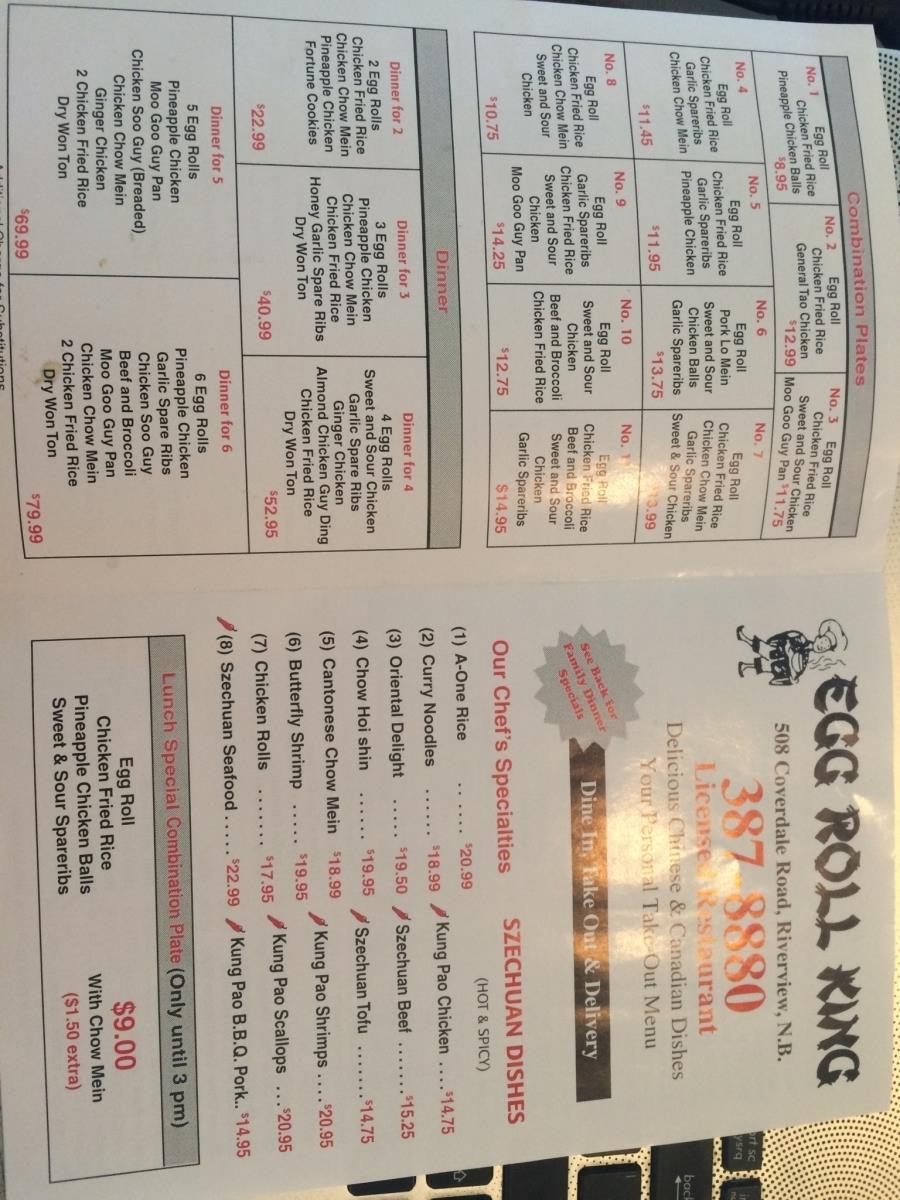 Combination Plates
No. 1
Egg Roll
Chicken Fried Rice
Pineapple Chicken Balls
$8.95
No. 2
Egg Roll
Chicken Fried Rice
General Tao Chicken
$12.99
No. 3
Egg Roll
Chicken Fried Rice
Sweet and Sour Chicken
Moo Goo Guy Pan $11.75
No. 4
Egg Roll
Chicken Fried Rice
Garlic Spareribs
Chicken Chow Mein
$11.45
No. 5
Egg Roll
Chicken Fried Rice
Garlic Spareribs
Pineapple Chicken
$11.95
No. 6
Egg Roll
Pork Lo Mein
Sweet and Sour
Chicken Balls
Garlic Spareribs
$13.75
No. 7
Egg Roll
Chicken Fried Rice
Chicken Chow Mein
Garlic Spareribs
Sweet & Sour Chicken
$13.99
No. 8
Egg Roll
Chicken Fried Rice
Chicken Chow Mein
Sweet and Sour
Chicken
$10.75
No. 9
Egg Roll
Garlic Spareribs
Chicken Fried Rice
Sweet and Sour
Chicken
Moo Goo Guy Pan
$14.25
No. 10
Egg Roll
Sweet and Sour
Chicken
Beef and Broccoli
Chicken Fried Rice
$12.75
No.
Egg Roll
Chicken Fried Rice
Beef and Broccoli
Sweet and Sour
Chicken
Garlic Spareribs
$14.95
Dinner
Dinner for 2
2 Egg Rolls
Chicken Fried Rice
Chicken Chow Mein
Pineapple Chicken
Fortune Cookies
$22.99
Dinner for 3
3 Egg Rolls
Pineapple Chicken
Chicken Chow Mein
Chicken Fried Rice
Honey Garlic Spare Ribs
Dry Won Ton
$40.99
Dinner for 4
4 Egg Rolls
Sweet and Sour Chicken
Garlic Spare Ribs
Ginger Chicken
Almond Chicken Guy Ding
Chicken Fried Rice
Dry Won Ton
$52.95
Dinner for 5
5 Egg Rolls
Pineapple Chicken
Moo Goo Guy Pan
Chicken Soo Guy (Breaded)
Chicken Chow Mein
Ginger Chicken
2 Chicken Fried Rice
Dry Won Ton
$69.99
Dinner for 6
6 Egg Rolls
Pineapple Chicken
Garlic Spare Ribs
Chicken Soo Guy
Beef and Broccoli
Moo Goo Guy Pan
Chicken Chow Mein
2 Chicken Fried Rice
Dry Won Ton
$79.99
EGG ROLL KING
508 Coverdale Road, Riverview, N.B.
387-8880
Licensed Restaurant
Delicious Chinese & Canadian Dishes
Your Personal Take-Out Menu
See Back for
Family Dinner
Specials
Dine In, Take Out & Delivery
Our Chef's Specialties
(1) A-One Rice ...... $20.99
(2) Curry Noodles ...... $18.99
(3) Oriental Delight ..... $19.50
(4) Chow Hoi shin ...... $19.95
(5) Cantonese Chow Mein $18.99
(6) Butterfly Shrimp ..... $19.95
(7) Chicken Rolls ...... $17.95
(8) Szechuan Seafood ..... $22.99
SZECHUAN DISHES
(HOT & SPICY)
Kung Pao Chicken ....$14.75
Szechuan Beef .......$15.25
Szechuan Tofu .......$14.75
Kung Pao Shrimps ....$20.95
Kung Pao Scallops ...$20.95
Kung Pao B.B.Q. Pork..$14.95
Lunch Special Combination Plate (Only until 3 pm)
Egg Roll
Chicken Fried Rice
Pineapple Chicken Balls
Sweet & Sour Spareribs
$9.00
With Chow Mein
($1.50 extra)